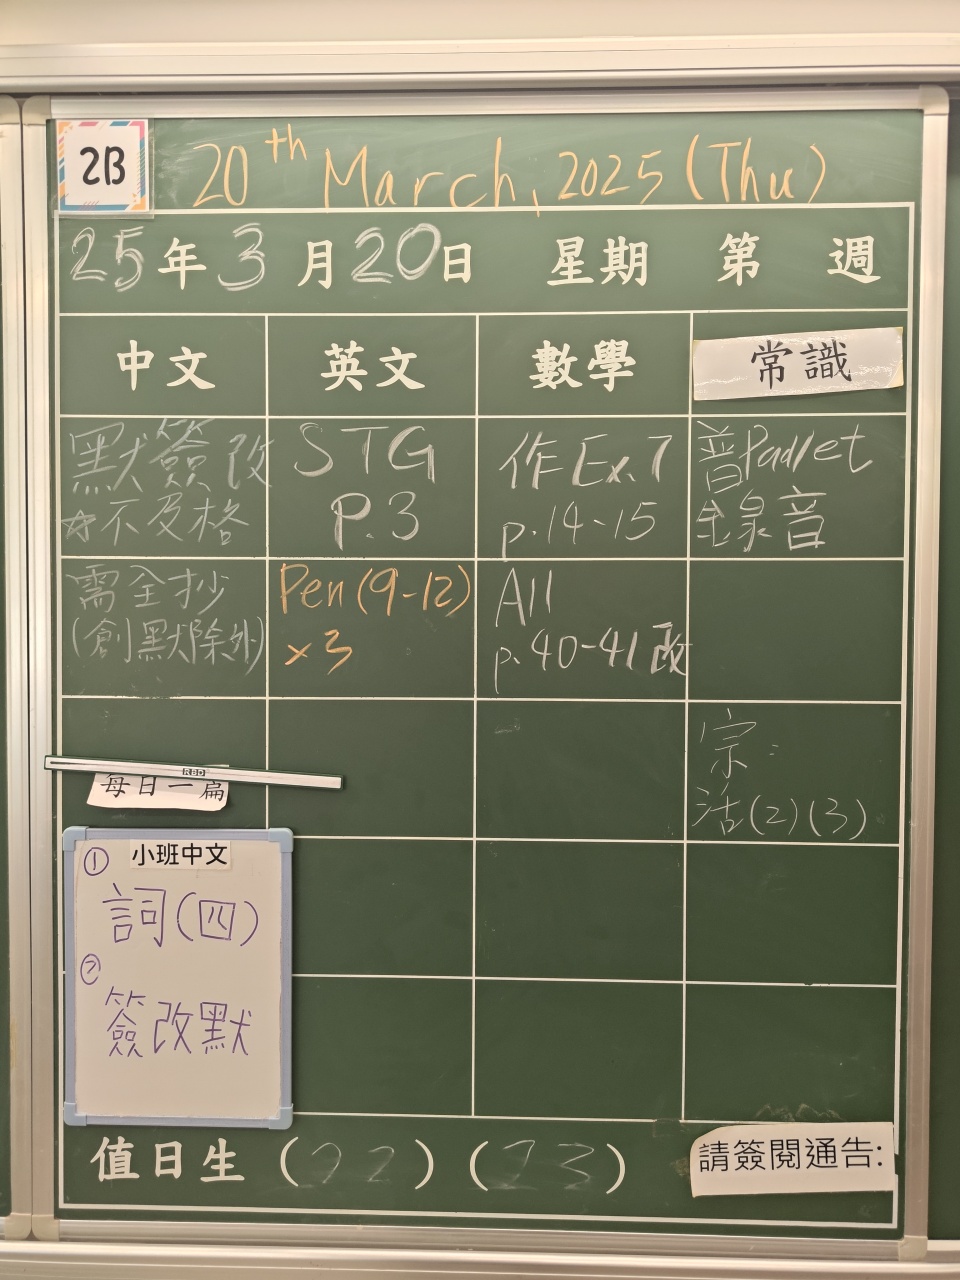 2B
20th March, 2025 (Thu)
25年3月20日 星期 第 週
中文 英文 數學 常識
默簽改
☆不及格
STG
P.3
作Ex.7
p.14-15
普Padlet
錄音
需全抄
(創默除外)
Pen (9-12)
×3
All
p.40-41改
宗:
活(2)(3)
RBD
每日一扁
小班中文
① 詞(四)
② 簽改默
值日生 (22) (23)
請簽閱通告: